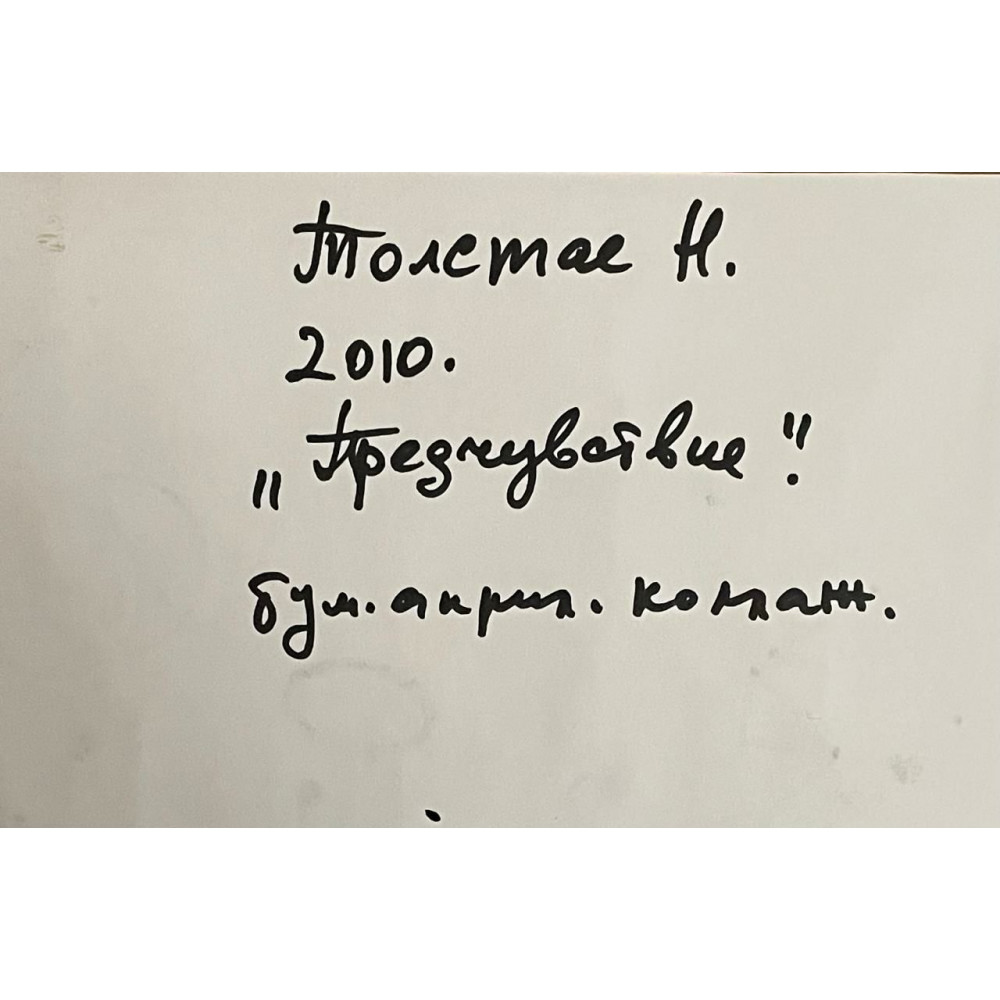 Толстая Н.
2010.
„Предчувствие".
бум. акрил. коллаж.